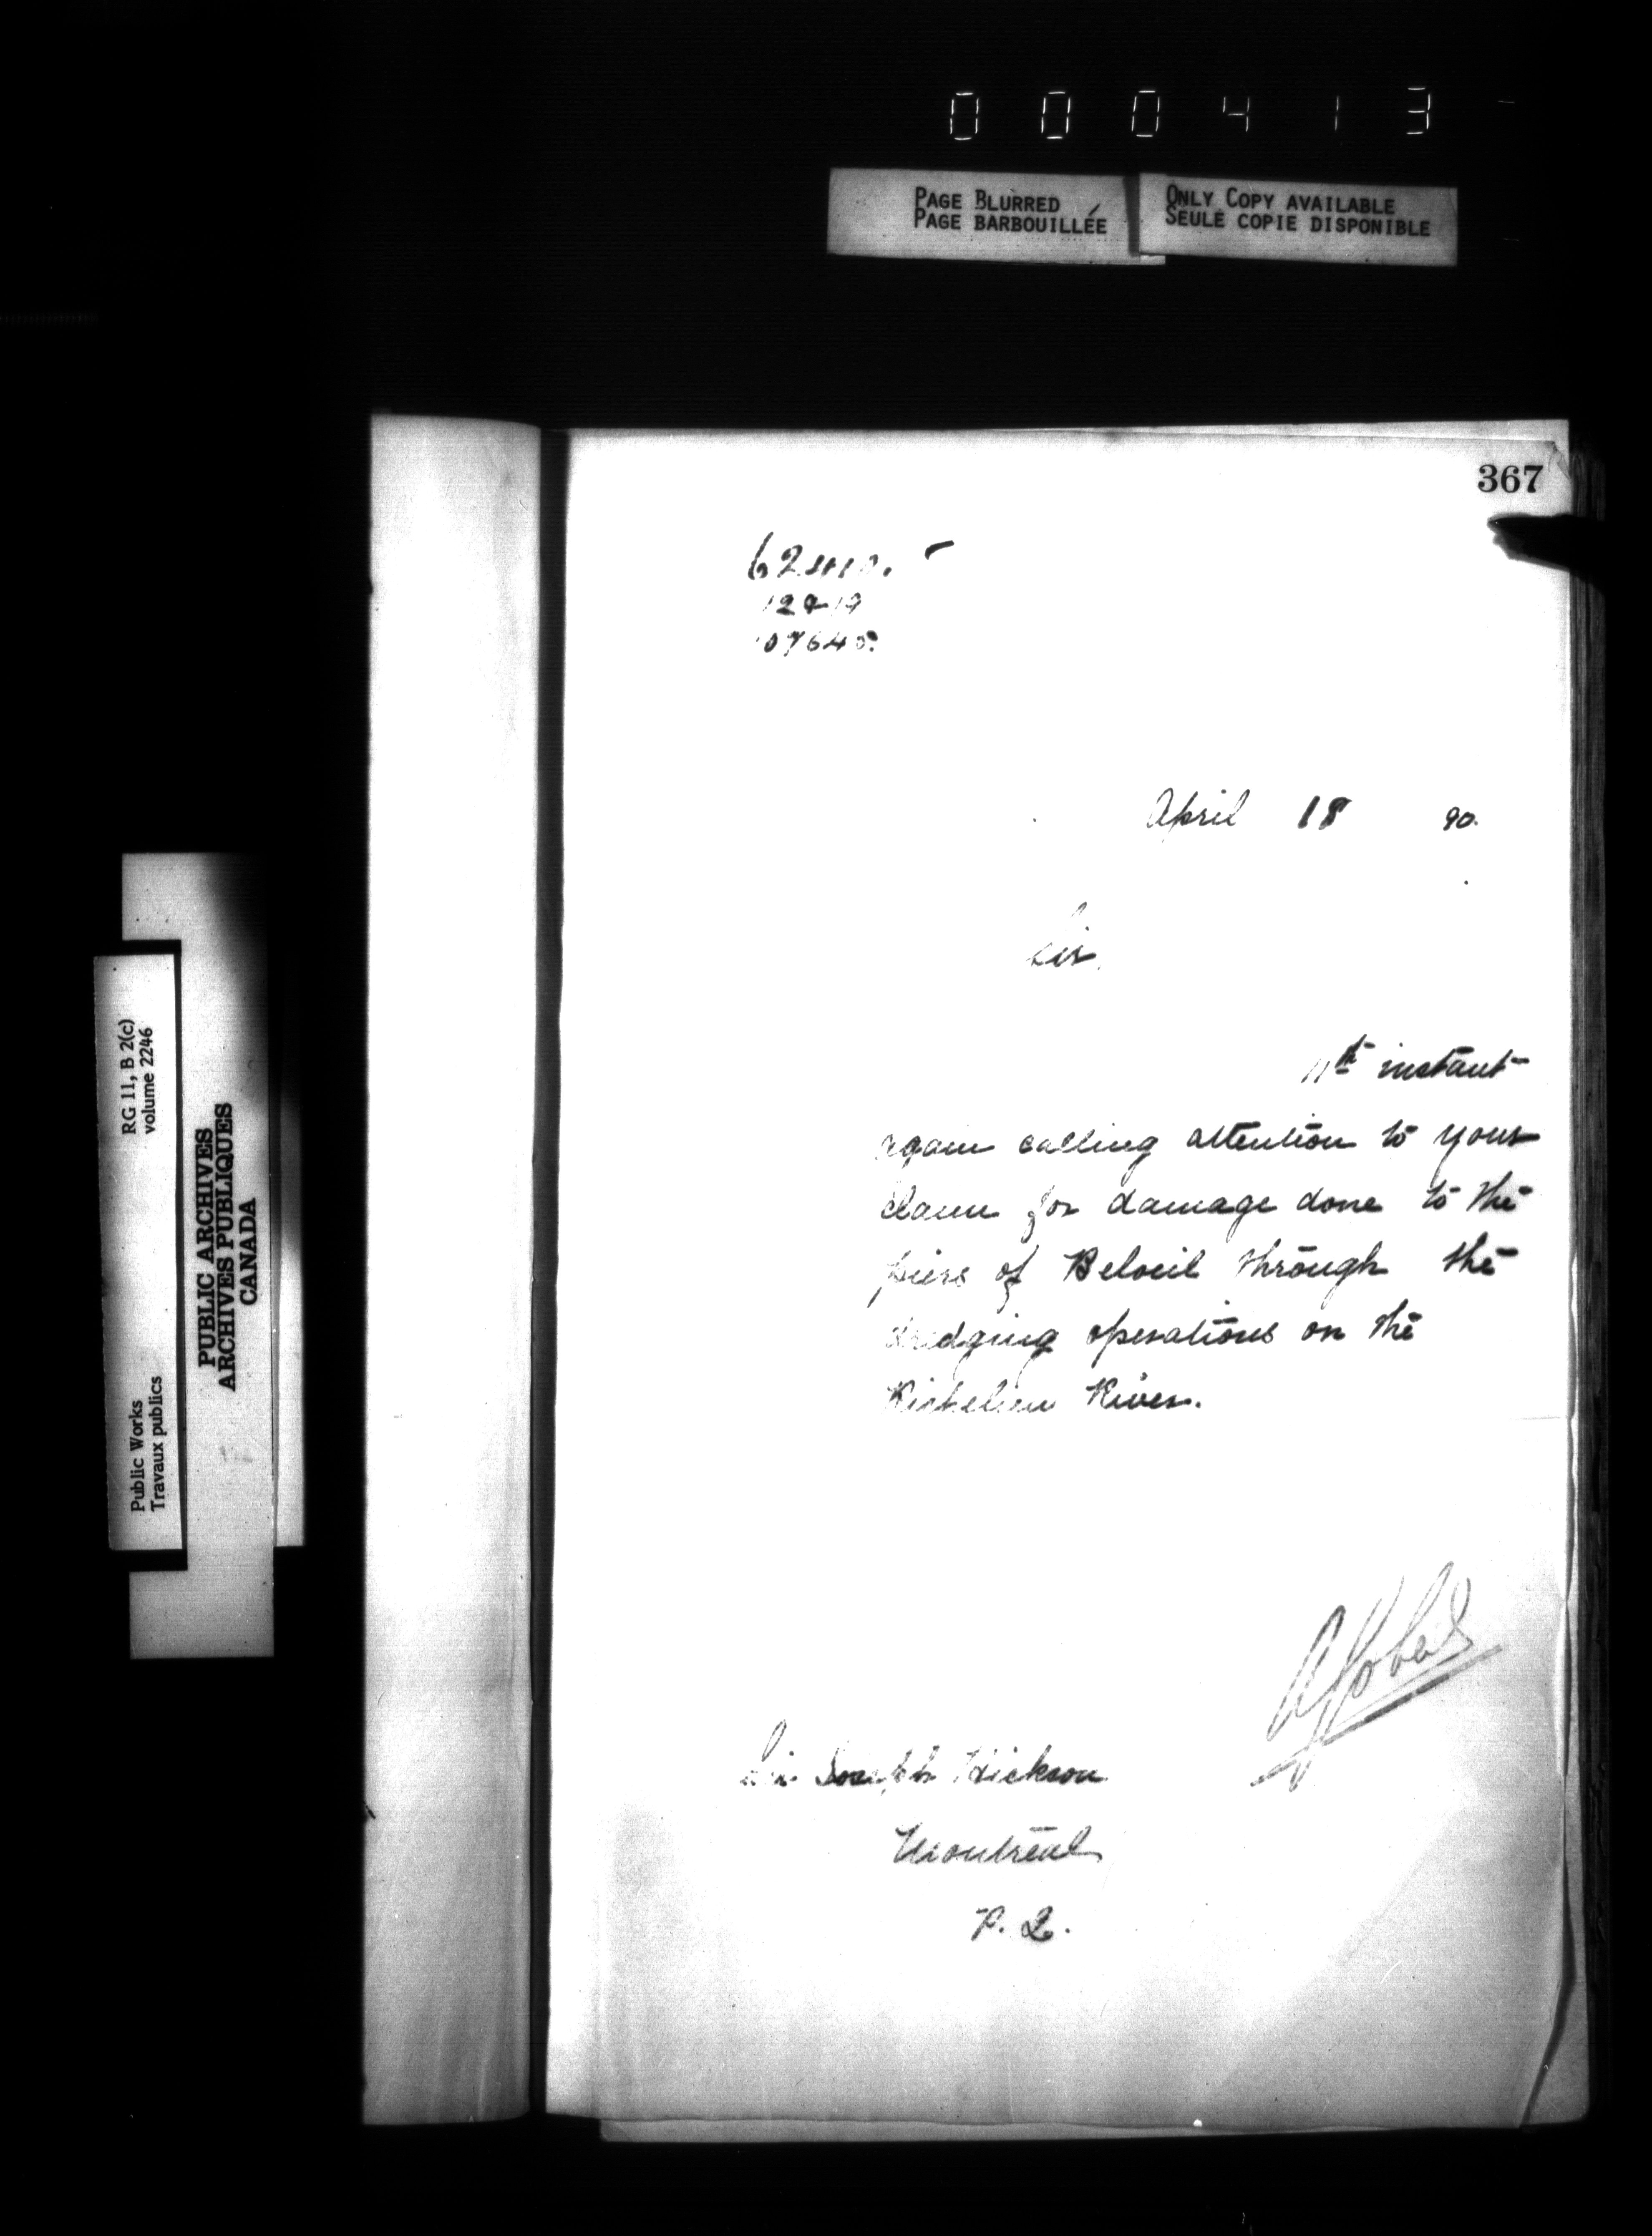 000413
PAGE BLURRED
PAGE BARBOUILLÉE
ONLY COPY AVAILABLE
SEULE COPIE DISPONIBLE
367
April 18 90.
Sir,
11th instant
again calling attention to your
claim for damage done to the
piers of Beloeil through the
dredging operations on the
Richelieu River.
Sir Joseph Hickson
Montreal
P. Q.
RG 11, B 2(c)
volume 2246
Public Works
Travaux publics
PUBLIC ARCHIVES
ARCHIVES PUBLIQUES
CANADA